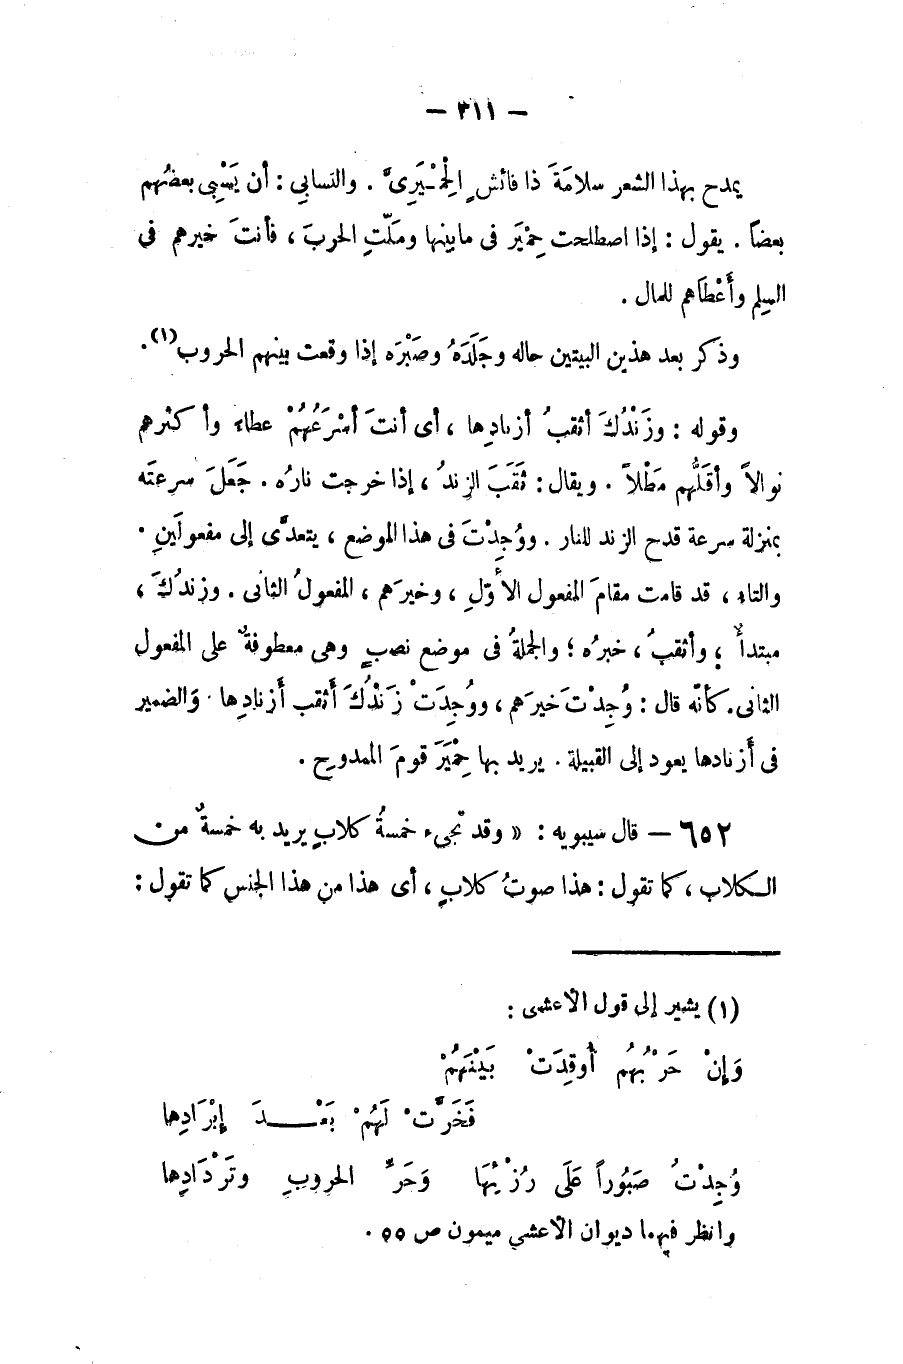 — ٣١١ —
يمدح بهذا الشعر سلامَةَ ذا فائشٍ الحِمْيَرِىَّ . والتسابي : أن يَسْبِى بعضُهم
بعضاً . يقول : إذا اصطلحت حِمْيَر فى مابينها وملّتِ الحربَ ، فأنتَ خيرهم فى
السِلم وأَعْطَاهم للمال .
وذكر بعد هذين البيتين حاله وجَلَدَهُ وصَبْرَه إذا وقعت بينهم الحروب(١).
وقوله : وزَنْدُكَ أثقبُ أزنادِها ، أى أنتَ أسْرَعُهُمْ عطاء وأكثرهم
نوالاً وأقَلُّهم مَطْلاً . ويقال : ثَقَبَ الزندُ ، إذا خرجت نارُه . جَعَلَ سرعتَه
بمنزلة سرعة قدح الزند للنار . ووُجِدْتَ فى هذا الموضع ، يتعدَّى إلى مفعولَينِ .
والتاء ، قد قامت مقامَ المفعول الأوّلِ ، وخيرَهم ، المفعولُ الثانى . وزندُكَ ،
مبتدأٌ ؛ وأثقبُ ، خبرُه ؛ والجملةُ فى موضع نصبٍ وهى معطوفةٌ على المفعول
الثانى. كأنّه قال : وُجِدْتَ خيرَهم ، ووُجِدَتْ زَنْدُكَ أَثقب أَزنادِها . وَالضمير
فى أَزنادها يعود إلى القبيلة . يريد بها حِمْيَرَ قومَ الممدوح .
٦٥٢ — قال سيبويه : « وقد تجىء خمسةُ كلابٍ يريد به خمسةٌ من
الكلاب ، كما تقول : هذا صوتُ كلابٍ ، أى هذا من هذا الجنس كما تقول :
(١) يشير إلى قول الأعشى :
وَإِنْ حَرْبُهُم أُوقِدَتْ بَيْنَهُمْ
فَخَرَّتْ لَهُمْ بَعْدَ إِبْرَادِها
وُجِدْتُ صَبُوراً عَلَى رُزْئِهَا وَحَرِّ الحروبِ وتَرْدَادِها
وانظر فيهما ديوان الأعشي ميمون ص ٥٥ .